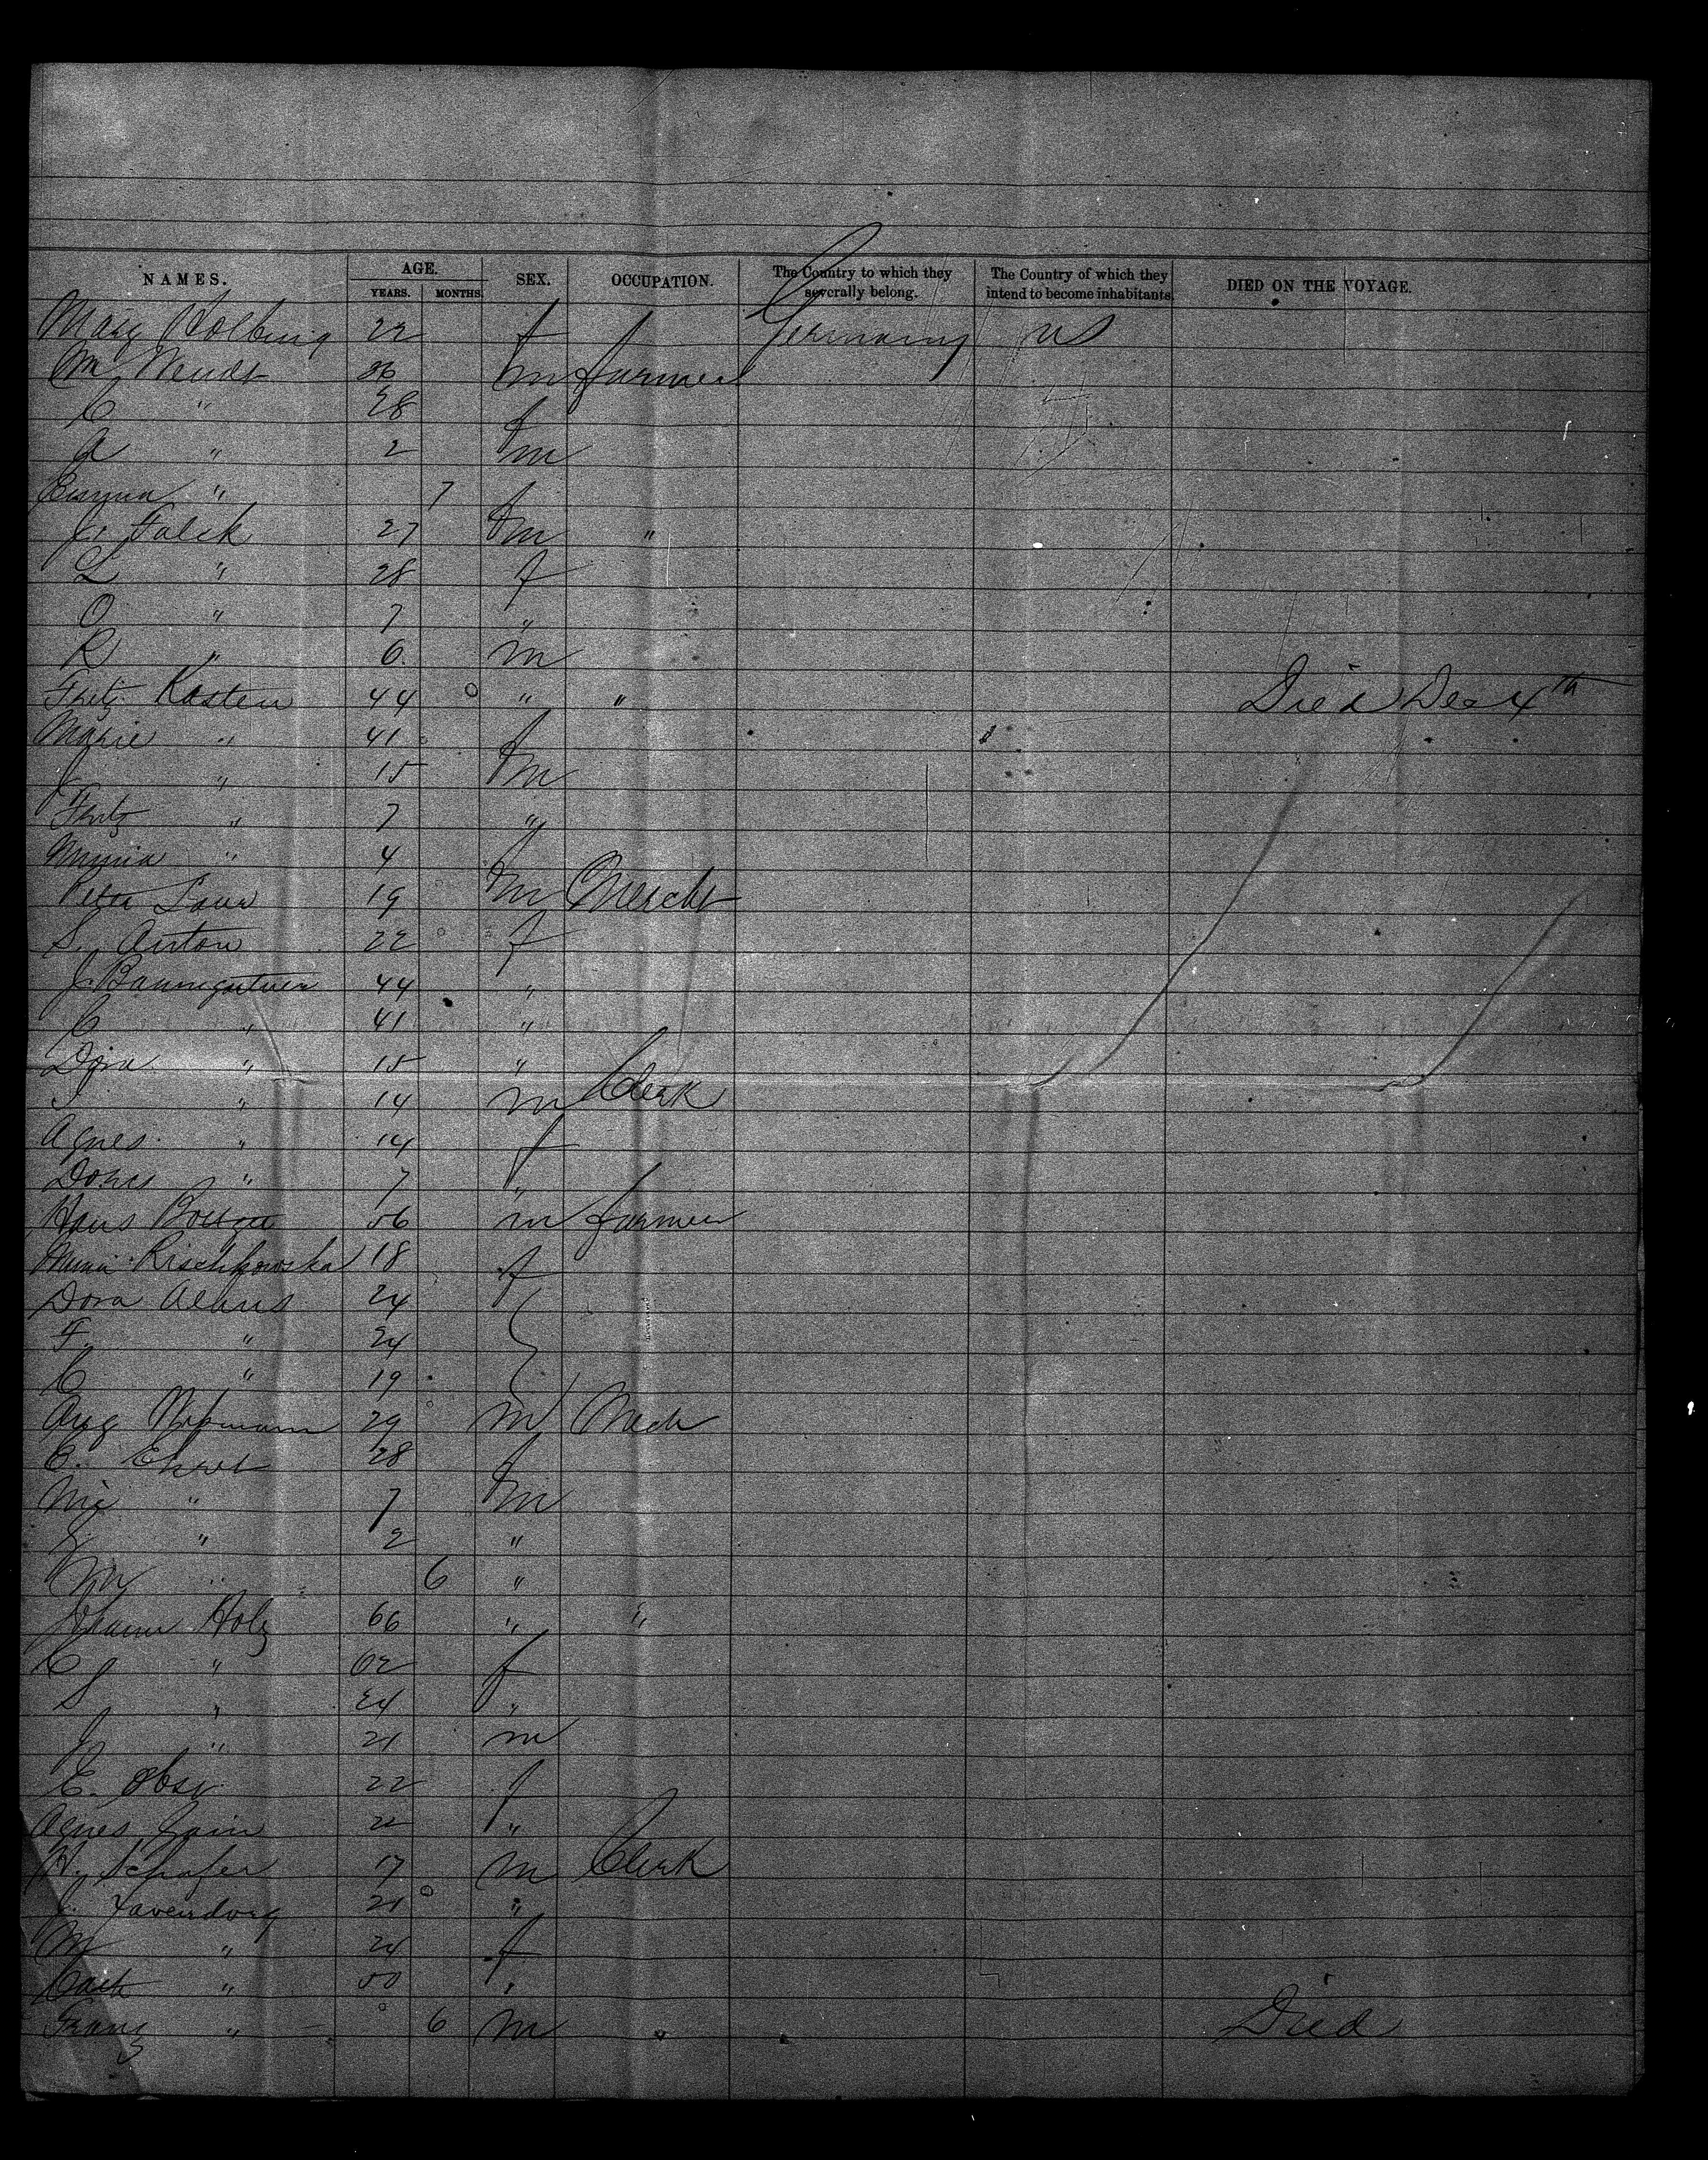 NAMES. AGE. SEX. OCCUPATION. The Country to which they severally belong. The Country of which they intend to become inhabitants. DIED ON THE VOYAGE.
YEARS. MONTHS.
Mary 22 f Germany US
Wm Wendt 36 m farmer
C " 28 f
A " 2 m
" 7 f
J. Falck 27 m "
L " 28 f
O " 7 "
R " 6 m
Fritz Kasten 44 " " Died Dec 4th
Marie " 41 f
J " 15 m
Fritz " 7 "
Minna " 4 f
19 m Mercht
S. Anton 22 f
J. Baumgartner 44 "
C " 41 "
Dora " 15 "
" 14 m Clerk
Agnes " 14 f
Doris " 7 "
Hans 56 m farmer
Rischkowska 18 f
Dora Ahrens 24
F. " 24
C " 19
Aug 29 m Mech
C. 28 f
" 7 m
" 2 "
Wm " 6 "
Johann Holz 66 " "
C " 62 f
S " 24 "
J " 21 m
E. 22 f
Agnes 22 "
H. Schafer 17 m Clerk
J. 21 "
M " 24 f
Cath " 50 "
Franz " 6 m Died